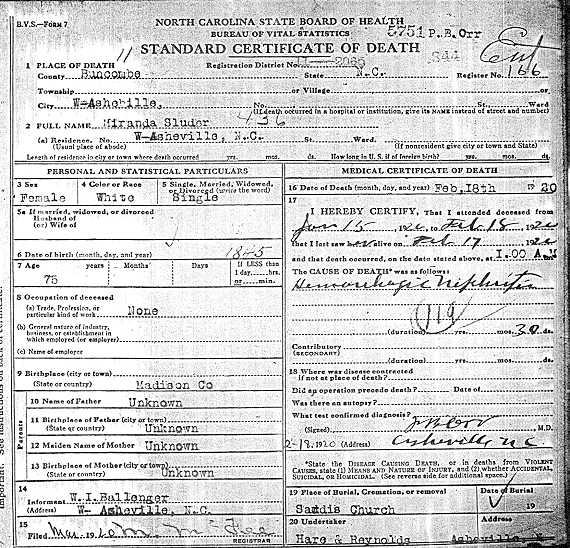 B.V.S.—FORM 7
NORTH CAROLINA STATE BOARD OF HEALTH
BUREAU OF VITAL STATISTICS
5751 P.B.Orr
STANDARD CERTIFICATE OF DEATH
344
1 PLACE OF DEATH 11
Registration District No. 2065
County Buncombe State N.C. Register No. 166
Township or Village
City W-Asheville, No. St. Ward
(If death occurred in a hospital or institution, give its NAME instead of street and number)
2 FULL NAME Miranda Sluder 436
(a) Residence. No. W-Asheville, N.C. St. Ward.
(Usual place of abode) (If nonresident give city or town and State)
Length of residence in city or town where death occurred yrs. mos. ds. How long in U. S. if of foreign birth? yrs. mos. ds.
PERSONAL AND STATISTICAL PARTICULARS
3 Sex 4 Color or Race 5 Single, Married, Widowed, or Divorced (write the word)
Female White Single
5a If married, widowed, or divorced
Husband of
(or) Wife of
6 Date of birth (month, day, and year) 1845
7 Age years Months Days If LESS than
1 day, hrs.
or min.
75
8 Occupation of deceased
(a) Trade, Profession, or
particular kind of work None
(b) General nature of industry,
business, or establishment in
which employed (or employer)
(c) Name of employer
9 Birthplace (city or town)
(State or country) Madison Co
Parents
10 Name of Father Unknown
11 Birthplace of Father (city or town)
(State or country) Unknown
12 Maiden Name of Mother Unknown
13 Birthplace of Mother (city or town)
(State or country) Unknown
14
Informant W.I.Ballenger
(Address) W- Asheville, N.C.
15
Filed 19 REGISTRAR
MEDICAL CERTIFICATE OF DEATH
16 Date of Death (month, day, and year) Feb,18th 1920
17
I HEREBY CERTIFY, That I attended deceased from
Jan 15 1920, to Feb 18 1920
that I last saw alive on Feb 17 1920
and that death occurred, on the date stated above, at 1.00 A.
The CAUSE OF DEATH* was as follows:
Hemorrhagic Nephritis
119
(duration) yrs. mos. 30 ds.
Contributory
(SECONDARY)
(duration) yrs. mos. ds.
18 Where was disease contracted
if not at place of death?
Did an operation precede death? Date of
Was there an autopsy?
What test confirmed diagnosis?
(Signed) P B Orr, M.D.
2-18, 1920 (Address) Asheville, N C
*State the DISEASE CAUSING DEATH, or in deaths from VIOLENT
CAUSES, state (1) MEANS AND NATURE OF INJURY, and (2) whether ACCIDENTAL,
SUICIDAL, or HOMICIDAL. (See reverse side for additional space.)
19 Place of Burial, Cremation, or removal Date of Burial
Church 19
20 Undertaker Address
Hare & Reynolds Asheville,